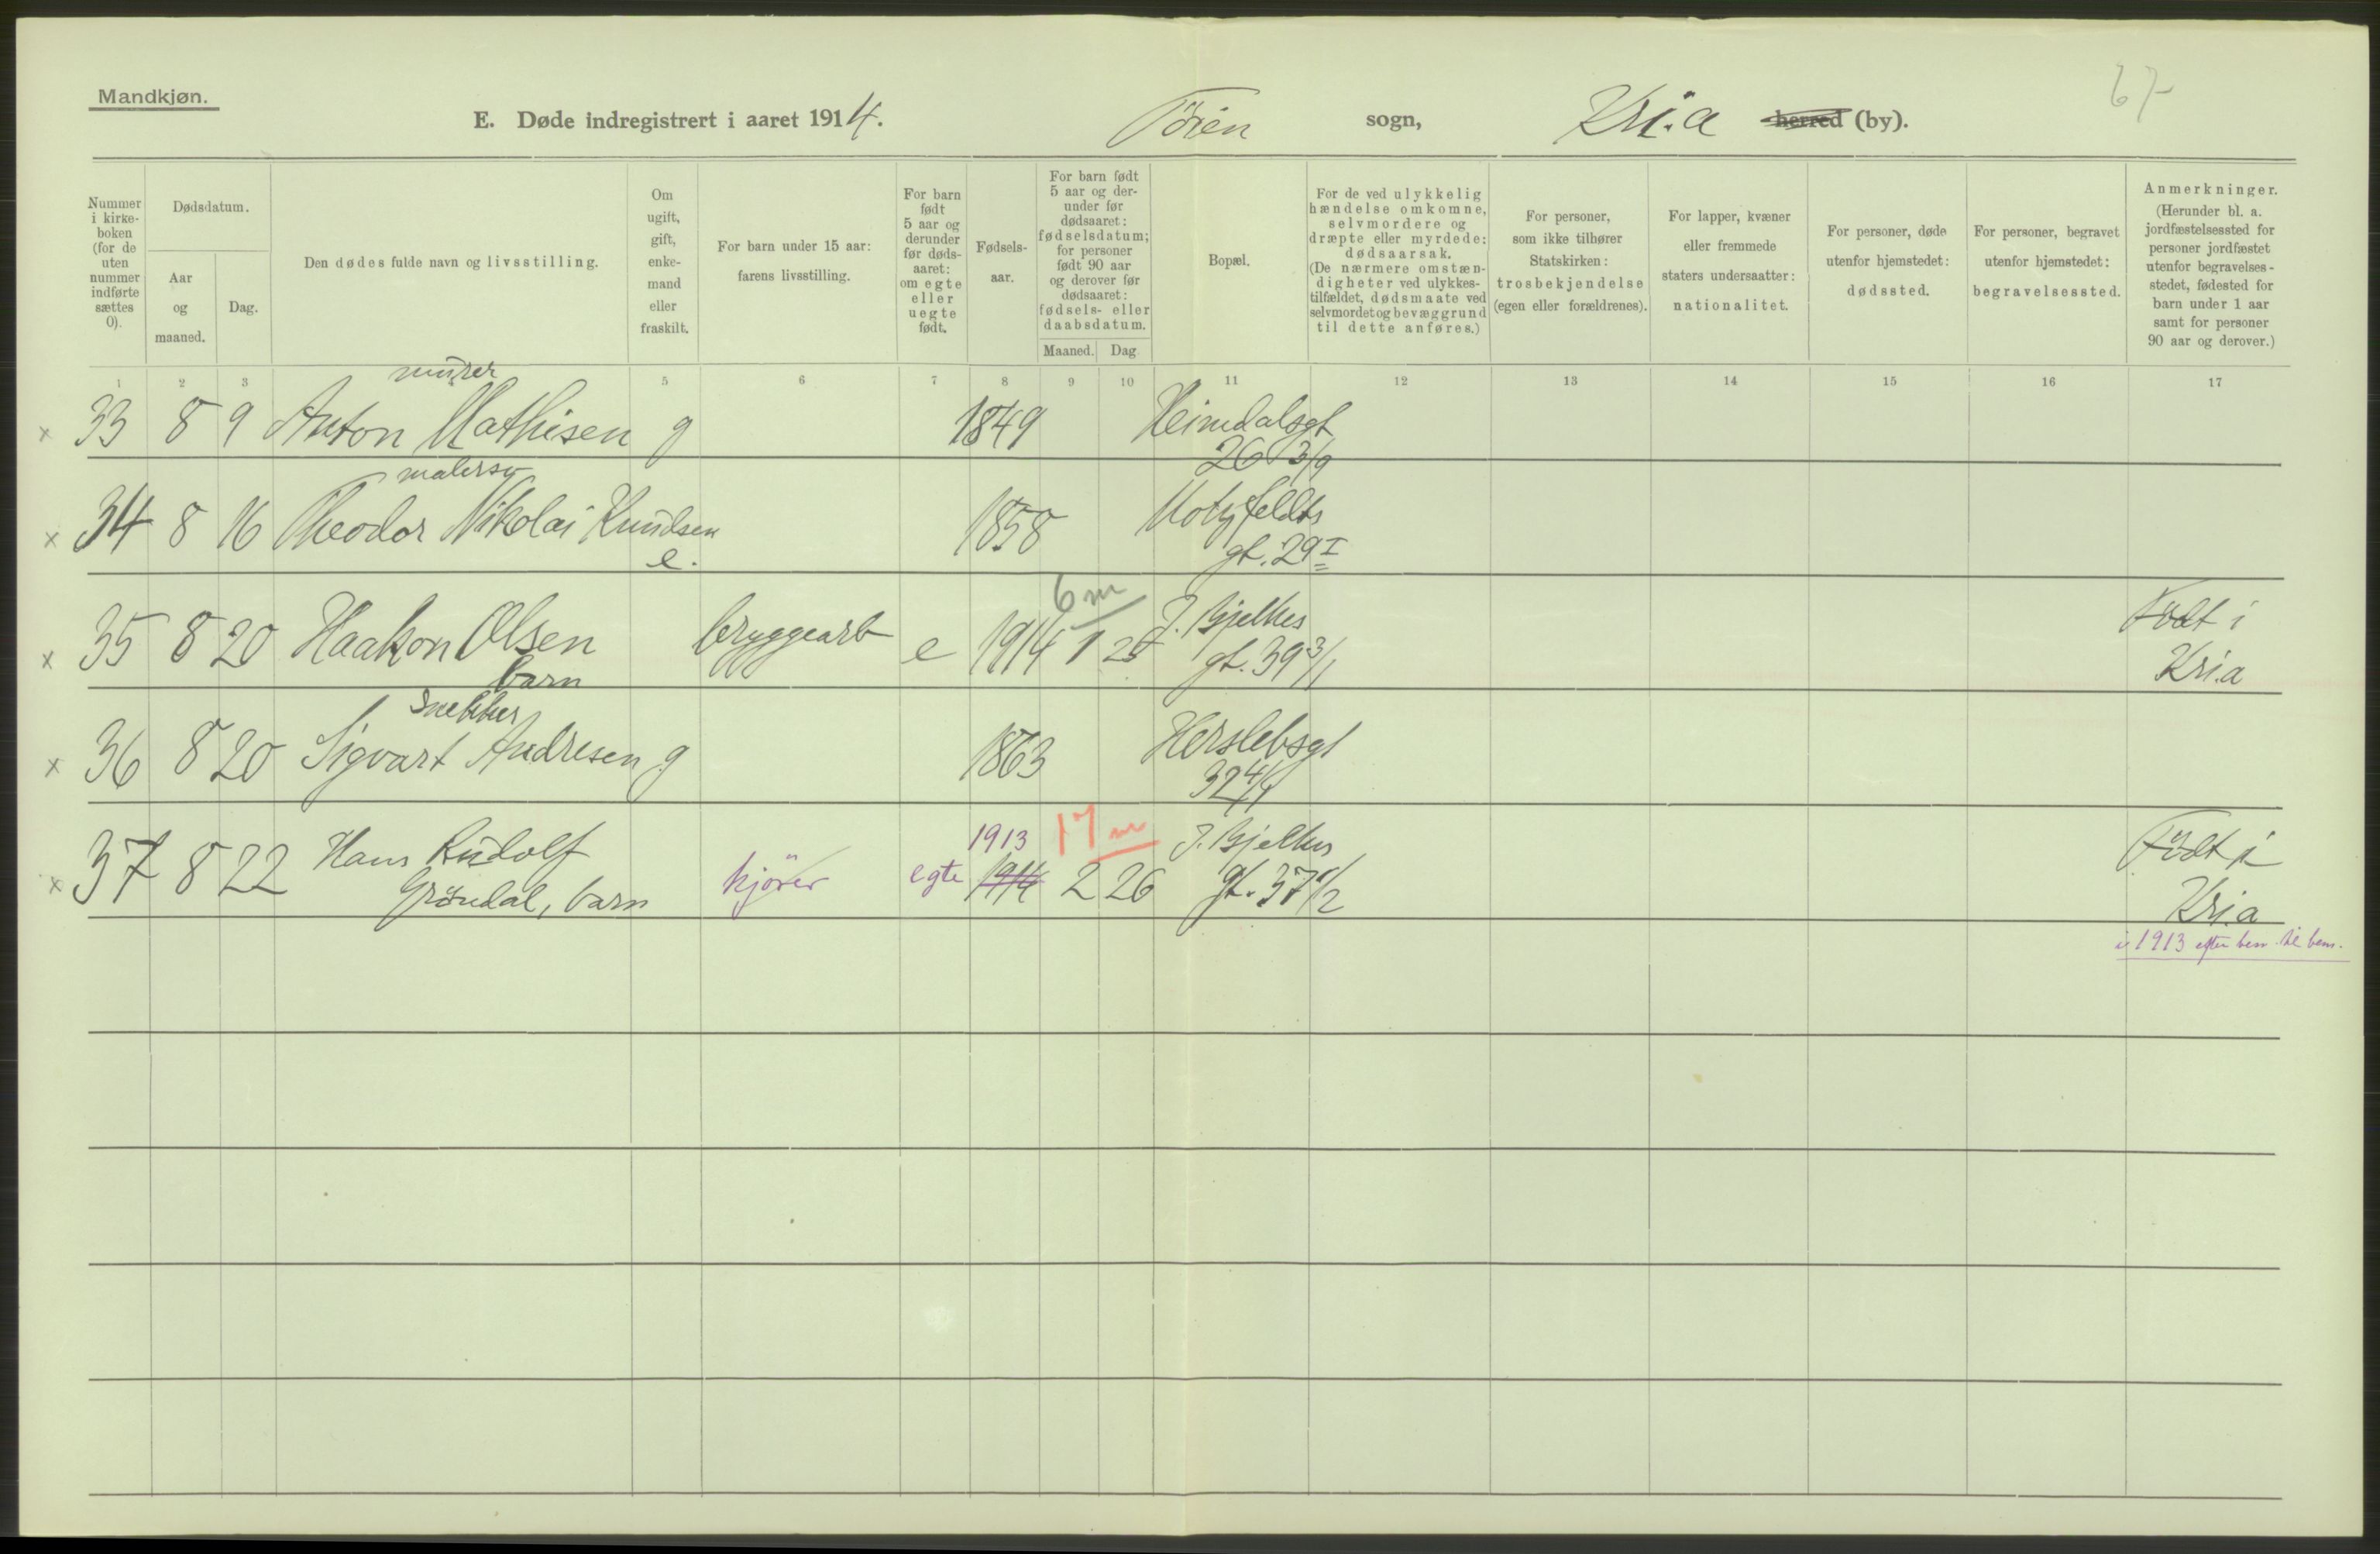 Mandkjøn.
67
E. Døde indregistrert i aaret 1914. Töien sogn, Kri.a herred (by).
Nummer i kirke- boken (for de uten nummer indførte sættes 0).
Dødsdatum.
Aar og maaned.
Dag.
Den dødes fulde navn og livsstilling.
Om ugift, gift, enke- mand eller fraskilt.
For barn under 15 aar: farens livsstilling.
For barn født 5 aar og derunder før døds- aaret: om egte eller uegte født.
Fødsels- aar.
For barn født 5 aar og der- under før dødsaaret: fødselsdatum; for personer født 90 aar og derover før dødsaaret: fødsels- eller daabsdatum.
Maaned. Dag
Bopæl.
For de ved ulykkelig hændelse omkomne, selvmordere og dræpte eller myrdede: dødsaarsak. (De nærmere omstæn- digheter ved ulykkes- tilfældet, dødsmaate ved selvmordet og bevæggrund til dette anføres.)
For personer, som ikke tilhører Statskirken: trosbekjendelse (egen eller forældrenes).
For lapper, kvæner eller fremmede staters undersaatter: nationalitet.
For personer, døde utenfor hjemstedet: dødssted.
For personer, begravet utenfor hjemstedet: begravelsessted.
Anmerkninger. (Herunder bl. a. jordfæstelsessted for personer jordfæstet utenfor begravelses- stedet, fødested for barn under 1 aar samt for personer 90 aar og derover.)
1 2 3 5 6 7 8 9 10 11 12 13 14 15 16 17
murer
x 33 8 9 Anton Mathisen g 1849 Heimdalsgt
26 3/9
malersv
x 34 8 16 Theodor Nikolai Knudsen 1858 Motzfeldts
e. gt. 29 I
6 m
x 35 8 20 Haakon Olsen bryggearb e 1914 1 25 J. Bjelkes Födt i
barn gt. 39 3/1 Kri.a
Snekker
x 36 8 20 Sigvart Andresen g 1863 Herslebsgt
32 4/1
1913 17 m
x 37 8 22 Hans Rudolf kjörer egte 1914 2 26 J. Bjelkes Födt i
Gröndal, barn gt. 37 1/2 Kri.a
i 1913 efter bem. til bem.